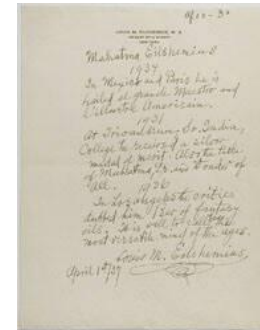 LOUIS M. EILSHEMIUS, M. A.
NEW YORK
Mahatma Eilshemius
1934
In Mexico and Paris he is
hailed el grande Maestro and
L'illustre Americain.
1931
At Trivandrum, So. India,
College he received a silver
medal of merit. Also the title
of Mahatma, Dr. and
All.
1936
In Los Angeles the critics
dubbed him of fantasy
oils. It is well to call
most versatile mind of the ages.
Louis M. Eilshemius,
April 1st/37